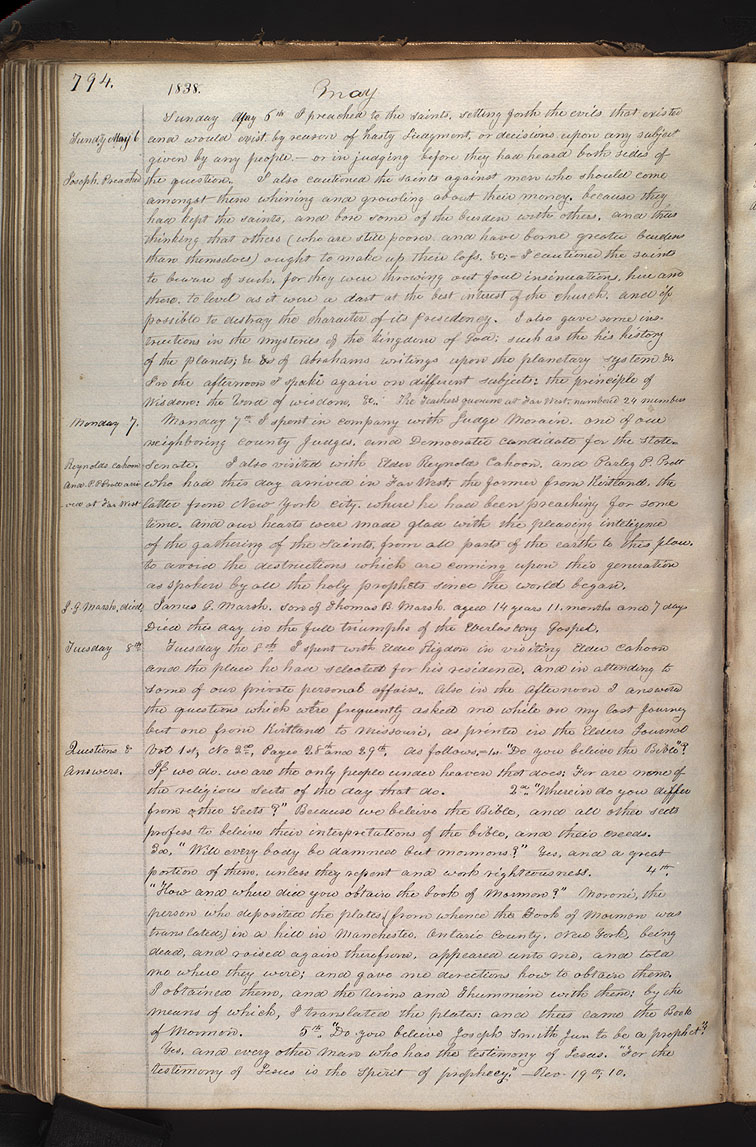 794.
1838.
May
Sunday May 6th I preached to the saints, setting forth the evils that existed
Sunday May 6
and would exist by reason of hasty Judgment, or decisions upon any subject
given by any people.— or in judging before they had heard both sides of
Joseph Preached
the question. I also cautioned the saints against men who should come
amongst them whining and growling about their money, because they
had kept the saints, and bore some of the burden with others, and thus
thinking that others (who are still poorer and have borne greater burdens
than themselves) ought to make up their loss, &c;— I cautioned the saints
to beware of such, for they were throwing out foul insinuations, here and
there, to level as it were a dart at the best interest of the church, and if
possible to destroy the character of its Presidency. I also gave some ins-
tructions in the mysteries of the kingdom of God; such as the his history
of the planets; &c &c of Abrahams writings upon the planetary system &c.
In the afternoon I spoke again on different subjects: the principle of
Wisdom: the Word of wisdom, &c.. The Teachers quorum at Far West, numbered 24 members
Monday 7.
Monday 7th I spent in company with Judge Morain, one of our
neighboring county Judges, and Democratic candidate for the state-
Reynolds Cahoon
Senate. I also visited with Elder Reynold Cahoon, and Parley P. Pratt
and P. P. Pratt arri
who had this day arrived in Far West, the former from Kirtland, the
ved at Far West
latter from New York city, where he had been preaching for some
time. And our hearts were made glad with the pleasing inteligence
of the gathering of the saints, from all parts of the earth to this place,
to avoid the destructions which are coming upon this generation
as spoken by all the holy prophets since the world began.
J. G. Marsh, died
James G. Marsh, son of Thomas B. Marsh, aged 14 years 11. months and 7 days
Died this day in the full triumphs of the Everlasting Gospel.
Tuesday 8th
Tuesday the 8th I spent with Elder Rigdon in visiting Elder Cahoon
and the place he had selected for his residence, and in attending to
some of our private personal affairs.. Also in the afternoon I answered
the questions which were frequently asked me while on my last Journey
but one from Kirtland to Missouri, as printed in the Elders Journal
Questions &
Vol 1st, No 2nd, Pages 28th and 29th. As follows.—1st "Do you believe the Bible"?
Answers.
If we do, we are the only people under heaven that does: For are none of
the religious sects of the day that do. 2nd "Wherein do you differ
from other Sects?" Because we believe the Bible, and all other sects
profess to believe their interpretations of the bible, and their creeds.
3d. "Will every body be damned but mormons?" Yes, and a great
portion of them, unless they repent and work righteousness. 4th.
"How and where did you obtain the book of Mormon?" Moroni, the
person who deposited the plates, (from whence the Book of Mormon was
translated) in a hill in Manchester, Ontario County, New York, being
dead, and raised again therefrom, appeared unto me, and told
me where they were; and gave me directions how to obtain them.
I obtained them, and the Urim and Thummim with them; by the
means of which, I translated the plates: and thus came the Book
of Mormon. 5th. "Do you believe Joseph Smith Jun to be a prophet"?
Yes, and every other man who has the testimony of Jesus. "For the
testimony of Jesus is the Spirit of prophecy."—Rev. 19th, 10.